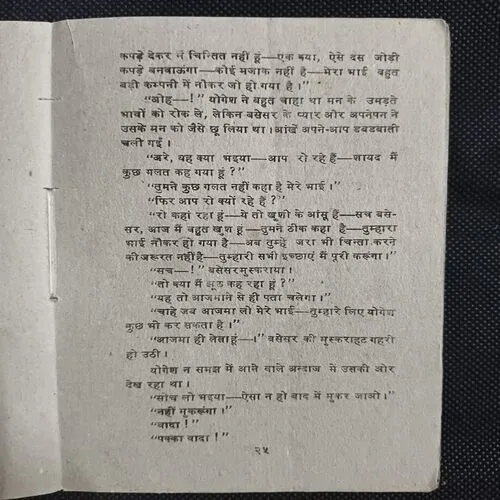 कपड़े देकर मैं चिन्तित नहीं हूं—एक क्या, ऐसे दस जोडी
कपड़े बनवाऊंगा—कोई मजाक नहीं है—मेरा भाई बहुत
बड़ी कम्पनी में नौकर जो हो गया है।”
“ओह—!” योगेश ने बहुत चाहा था मन के उमड़ते
भावों को रोक ले, लेकिन बसेसर के प्यार और अपनेपन ने
उसके मन को जैसे छू लिया था। आंखें अपने-आप डबडबाती
चली गईं।
“अरे, यह क्या भइया—आप रो रहे हैं—शायद मैं
कुछ गलत कह गया हूं?”
“तुमने कुछ गलत नहीं कहा है मेरे भाई।”
“फिर आप रो क्यों रहे हैं?”
“रो कहां रहा हूं—ये तो खुशी के आंसू हैं—सच बसे-
सर, आज मैं बहुत खुश हूं—तुमने ठीक कहा है—तुम्हारा
भाई नौकर हो गया है—अब तुम्हें जरा भी चिन्ता करने
की जरूरत नहीं है—तुम्हारी सभी इच्छाएं मैं पूरी करूंगा।”
“सच—!” बसेसर मुस्कराया।
“तो क्या मैं झूठ कह रहा हूं?”
“यह तो आजमाने से ही पता चलेगा।”
“चाहे जब आजमा लो मेरे भाई—तुम्हारे लिए योगेश
कुछ भी कर सकता है।”
“आजमा ही लेता हूं—।” बसेसर की मुस्कराहट गहरी
हो उठी।
योगेश न समझ में आने वाले अन्दाज में उसकी ओर
देख रहा था।
“सोच लो भइया—ऐसा न हो बाद में मुकर जाओ।”
“नहीं मुकरूंगा।”
“वादा!”
“पक्का वादा!”
२५